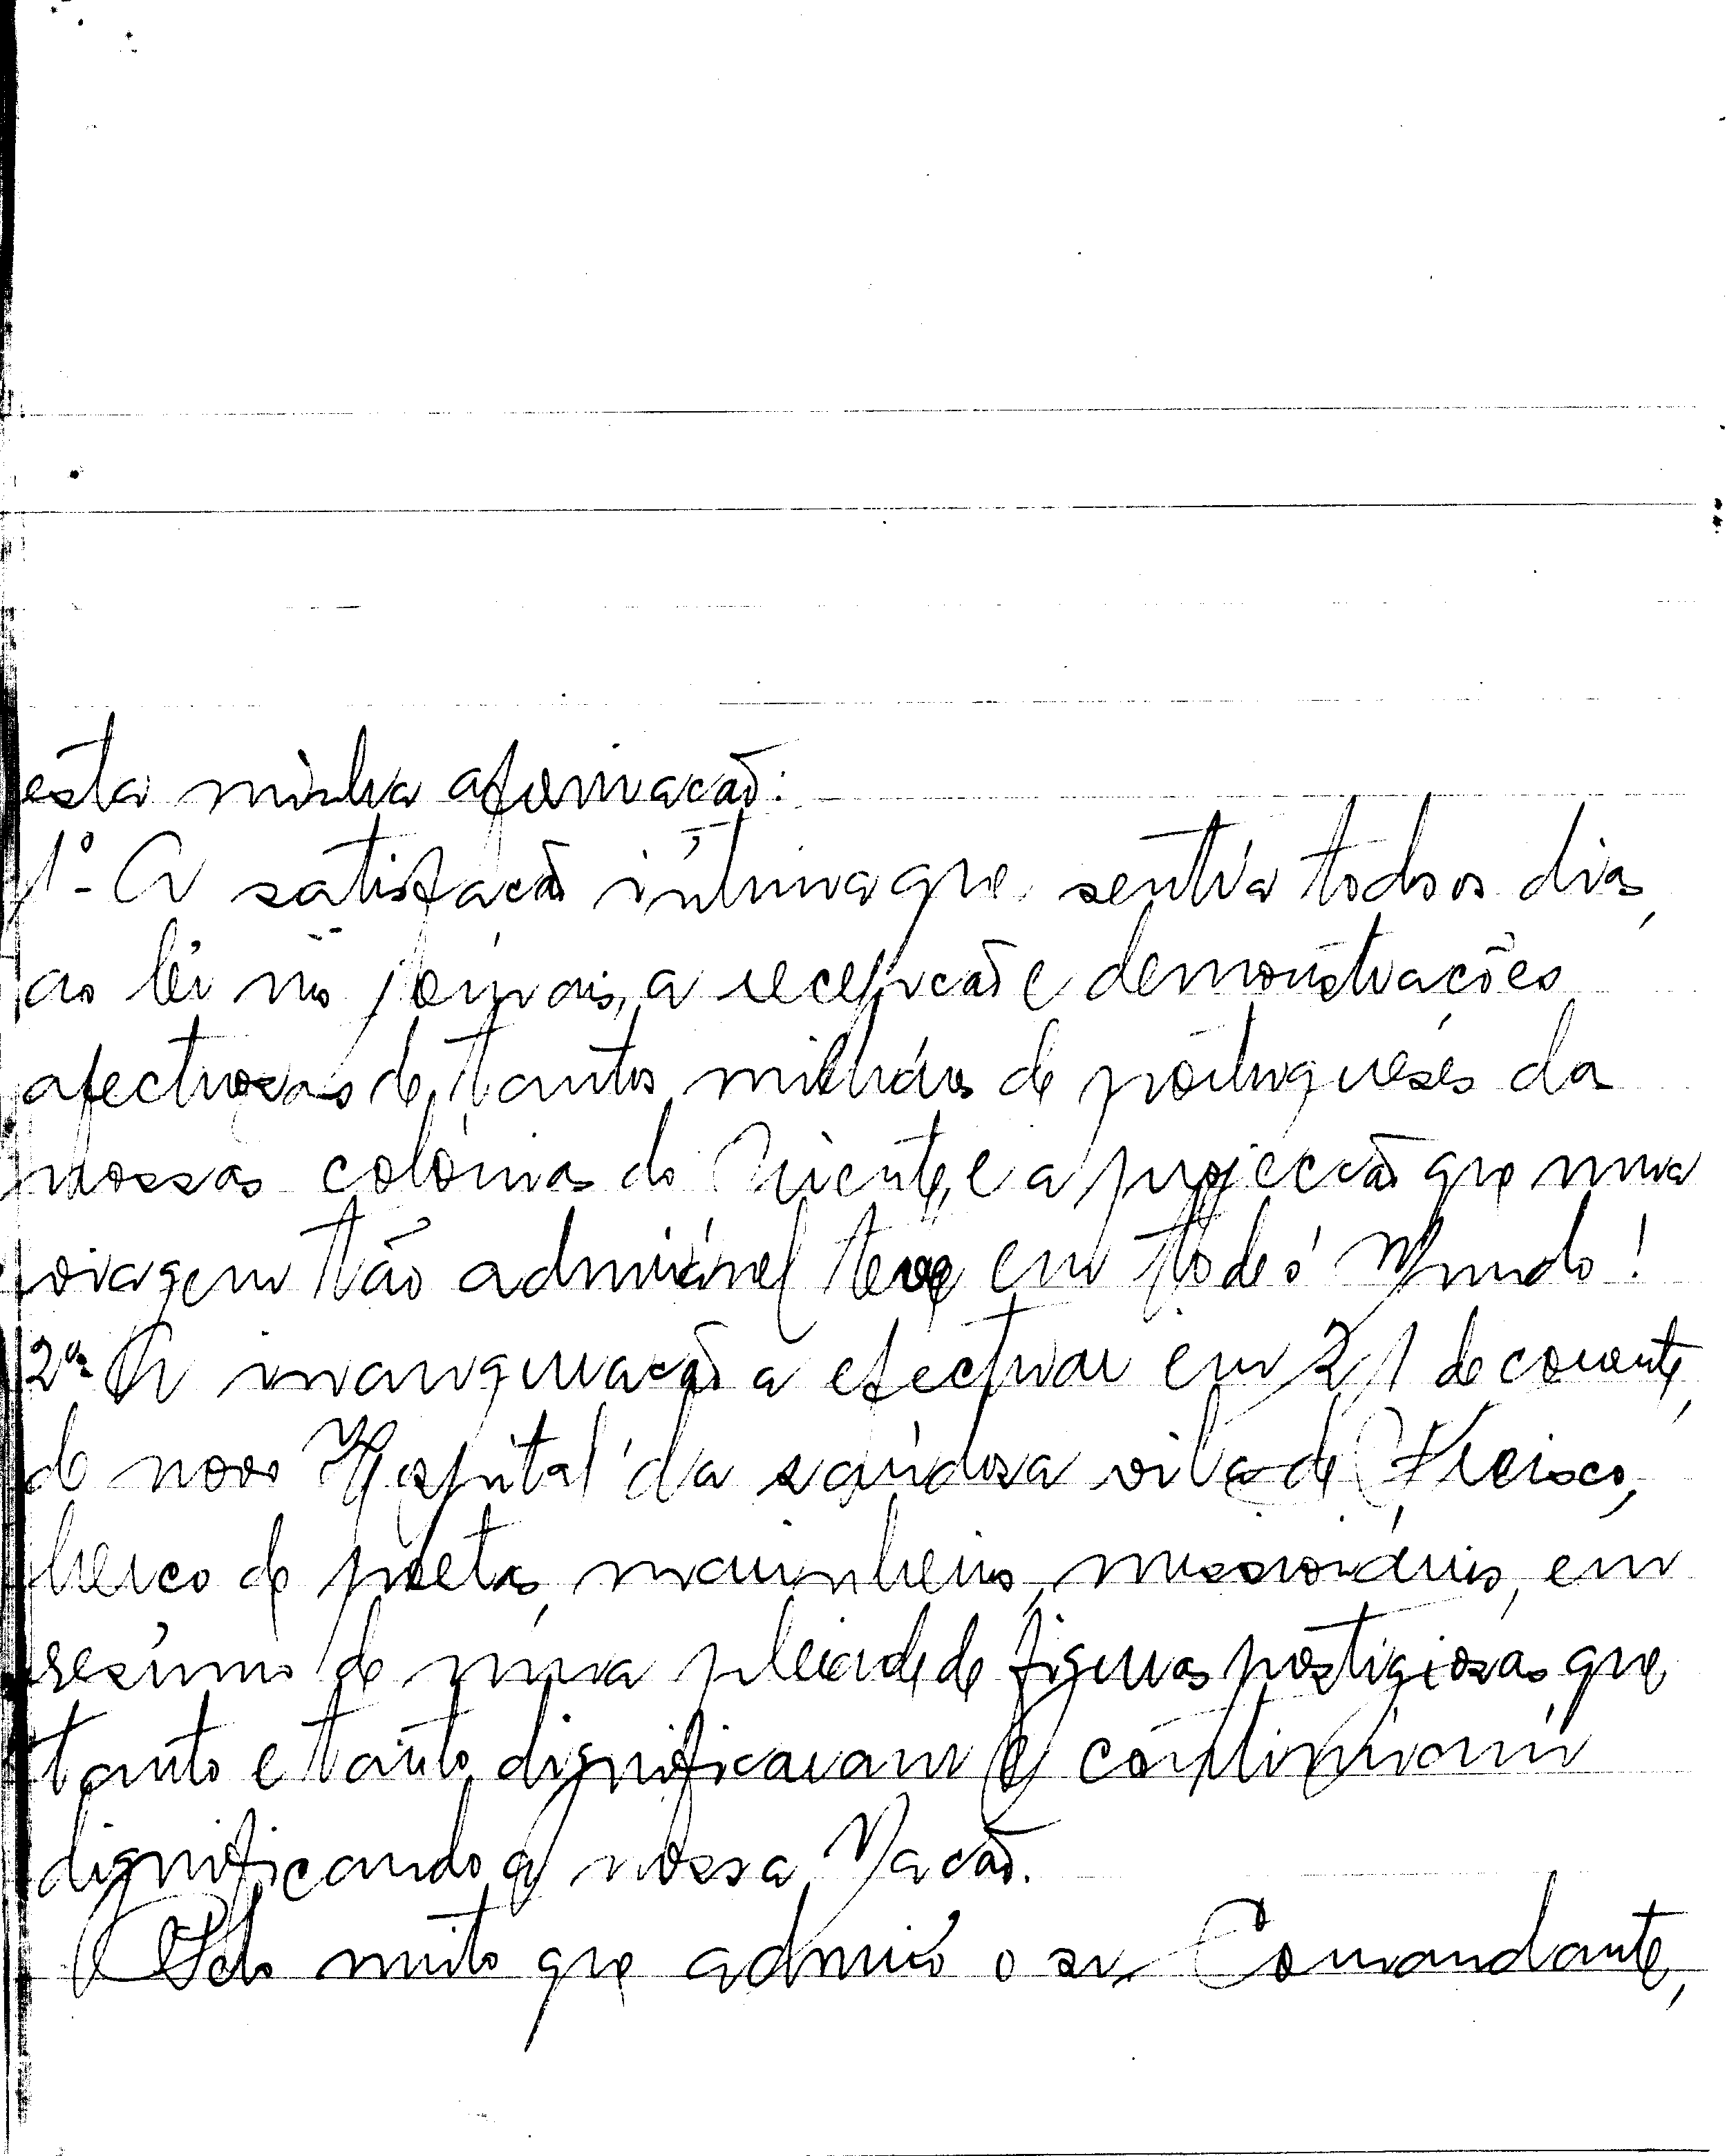 esta minha afirmação:
1º- A satisfação íntima que sentia todos os dias,
ao lêr nos jornais, a recepção e demonstrações
afectuosas de tantos milhões de portugueses da
nossas colónias do Oriente, e a projecção que uma
viagem tão admirável teve em todo o Mundo!
2ª- A inauguração a efectuar em 21 do corrente,
do novo Hospital da saudosa vila de Freixo,
berço de poetas, marinheiros, missionários, em
resumo de uma pleiade de figuras prestigiosas que
tanto e tanto dignificaram e continuam
dignificando a nossa Nação.
Pelo muito que admiro o sr. Comandante,